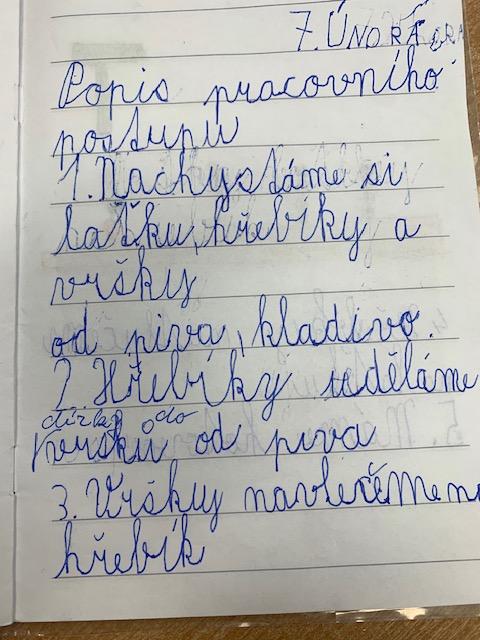 7. ÚNORA
Popis pracovního
postupu
1. Nachystáme si
laťku, hřebíky a
vršky
od piva, kladivo.
2. Hřebíky uděláme
dírky do
vršku od piva
3. Vršky navlečeme na
hřebík